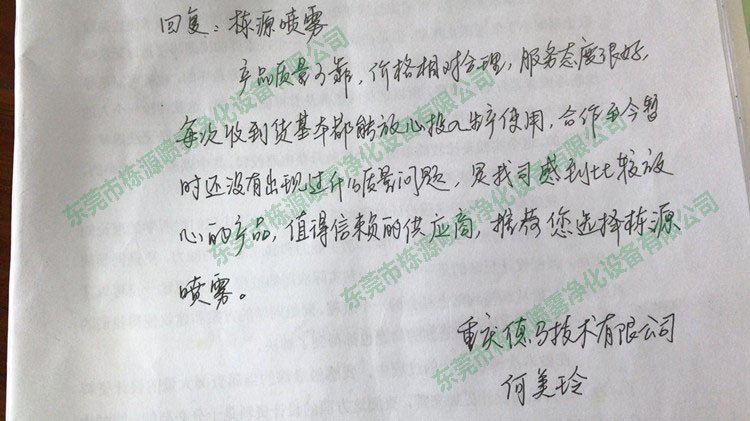 回复：栋源喷雾
产品质量可靠，价格相对合理，服务态度很好，
每次收到货基本都能放心投入生产使用，合作至今暂
时还没有出现过什么质量问题，是我司感到比较放
心的产品，值得信赖的供应商，推荐您选择栋源
喷雾。
重庆德马技术有限公司
何美玲
东莞市栋源喷雾净化设备有限公司
东莞市栋源喷雾净化设备有限公司
东莞市栋源喷雾净化设备有限公司